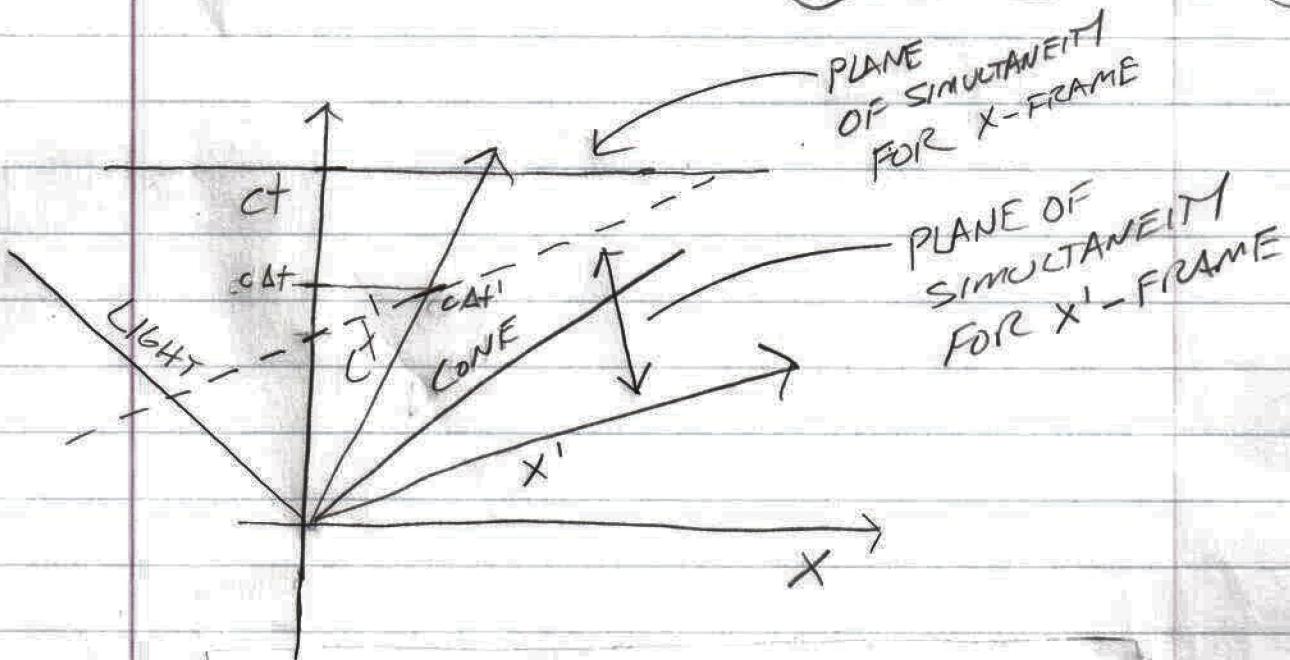 PLANE
OF SIMULTANEITY
FOR X-FRAME
PLANE OF
SIMULTANEITY
FOR X'-FRAME
ct
cΔt
cΔt'
ct'
LIGHT
CONE
X'
X